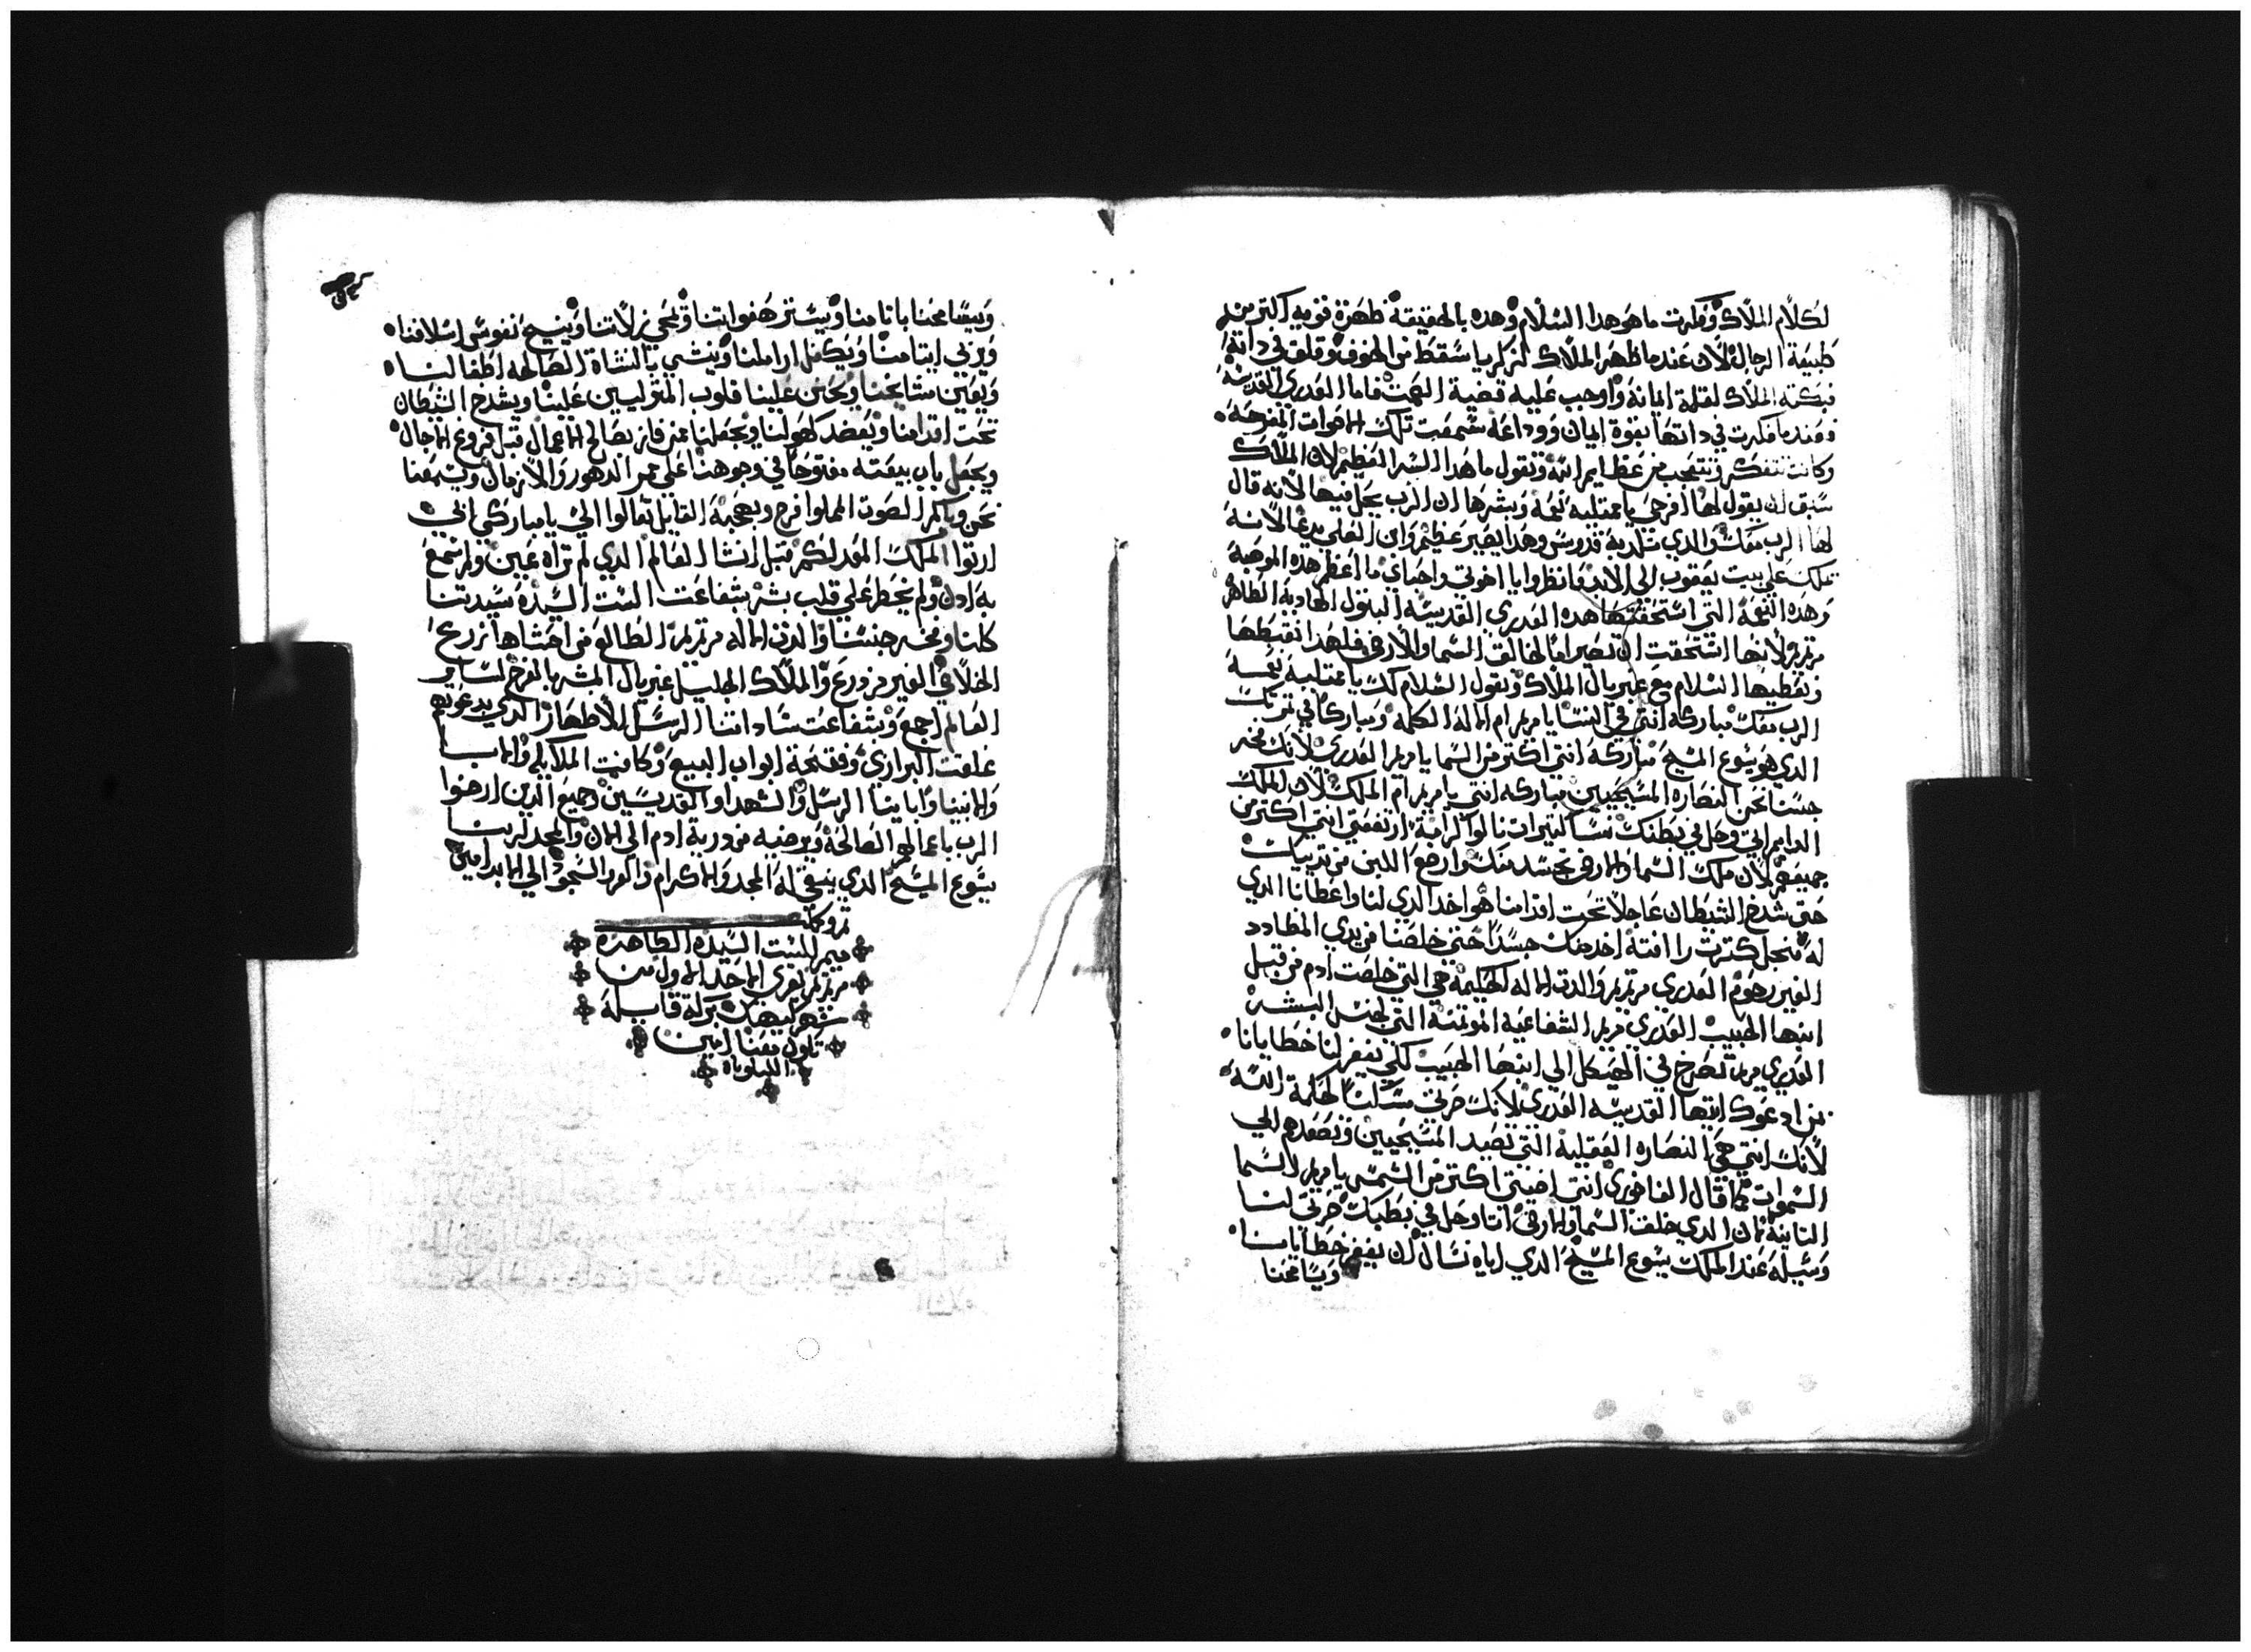 لكلام الملاك وفكرت ما هو هدا السلام وهده بالحقيقة ظهرة قويه اكتر من
طبيعة الرجال لان عندما ظهر الملاك لزكريا سقط من الخوف وقلق في داته
فبكته الملاك لقلة ايمانة واوجب عليه قضية الصمت فاما العدري القديسة
فعندما فكرت في داتها بقوة ايمان ووداعه سمعت تلك الاصوات المفرحة
وكانت تتفكر وتتعجب من عظايم الله وتقول ما هدا السر العظيم لان الملاك
سبق ان يقول لها افرحي يا ممتليه نعمة وبشرها ان الرب يحل فيها لانه قال
لها الرب معك والدي تلديه قدوس وهدا يصير عظيم وابن العلي يدعا لانه
يملك علي بيت يعقوب الي الابد فانظروا يا اخوتي واحباي ما اعظم هده الموهبة
وهده النعمة التي استحقتها هده العدري القديسة البتول الهادية الطاهر
مرتمريم لانها استحقت ان تصير اما لخالق السما والارض فلهدا نغبطها
ونعطيها السلام مع غبريال الملاك ونقول السلام لك يا ممتليه نعمة
الرب معك مباركة انتي في النسا يا مريم ام الاله الكلمة ومباركا في تمرتك
الدي هو يسوع المسيح مباركة انتي اكتر من السما يا مريم العدري لانك فخر
جنسنا نحن النصاره المسيحيين مباركه انتي يا مريم ام الملك لان الملك
الدايم اتي وحل في بطنك نسا كتيرات نالوا كرامة ارتفعتي انتي اكتر من
جميعهم لان ملك السما والارض تجسد منك وارضع اللبن من تدييك
حتي شدخ الشيطان عاجلا تحت اقدامنا هو اخد الدي لنا واعطانا الدي
له من اجل كترت رافته اخد منك جسدا حتي خلصنا من يدي المضادد
الغير رحوم العدري مرتمريم والدت الاله الحكيمة هي التي خلصت ادم من قبل
ابنها الحبيب العدري مريم الشفاعيه الموتمنة التي لجنس البشر
العدري مريم تصرخ في الهيكل الي ابنها الحبيب لكي يغفر لنا خطايانا
من ادعوك ايتها القديسه العدري لانك صرتي مسكنا لحكمة الله
لانك انتي هي النصاره العقلية التي تصيد المسيحيين وتصعدهم الي
السموات كما قال انتي اضيتي اكتر من الشمس يا مريم السما
التانية لان الدي خلق السما والارض اتا وحل في بطنك صرتي لنا
وسيلة عند الملك يسوع المسيح الدي اياه نسال ان يغفر خطايانا
ويسامحنا
ويسامحنا باتامنا ويستر هفواتنا ويمحي زلاتنا وينيح نفوس اسلافنا
ويربي ايتامنا ويكفل اراملنا وينشي بالنشاة الصالحه اطفالنا
ويعين مشايخنا ويحنن علينا قلوب المتوليين علينا ويشدخ الشيطان
تحت اقدامنا ويعضد كهولنا ويجعلنا ممن فاز بصالح الاعمال قبل فروغ الاجال
ويجعل باب بيعته مفتوحا في وجوهنا علي ممر الدهور والازمان ويسمعنا
نحن وياكم الصوت المملوا فرح وبهجة القايل تعالوا الي يا مباركي ابي
ارتوا الملك المعد لكم قبل انشا العالم الدي لم تراه عين ولم تسمع
به ادن ولم يخطر علي قلب بشر بشفاعت الست السيدة سيدتنا
كلنا وفخر جنسنا والدت الاله مرتمريم الطالع من احشاها زرع
الخلاص الغير مزروع والملاك الجليل غبريال المبشر بالفرح لساير
العالم اجمع وبشفاعت ساداتنا الرسل الاطهار الدي بدعوتهم
غلقت البراري وفتحة ابواب البيع وكافت الملايكه والاباء
والانبيا وابايتنا الرسل والشهدا والقديسين وجميع الدين ارضوا
الرب باعمالهم الصالحة ويرضيه من درية ادم الي الان والمجد لربنا
يسوع المسيح الدي ينبغي له المجد والاكرام والعز والسجود الي الابد امين
تم وكمل
ميمر للست السيدة الطاهرة
مرتمريم يقري الاحد الاول من
شهر كيهك بركة قابله
تكون معنا امين
الليلوياه